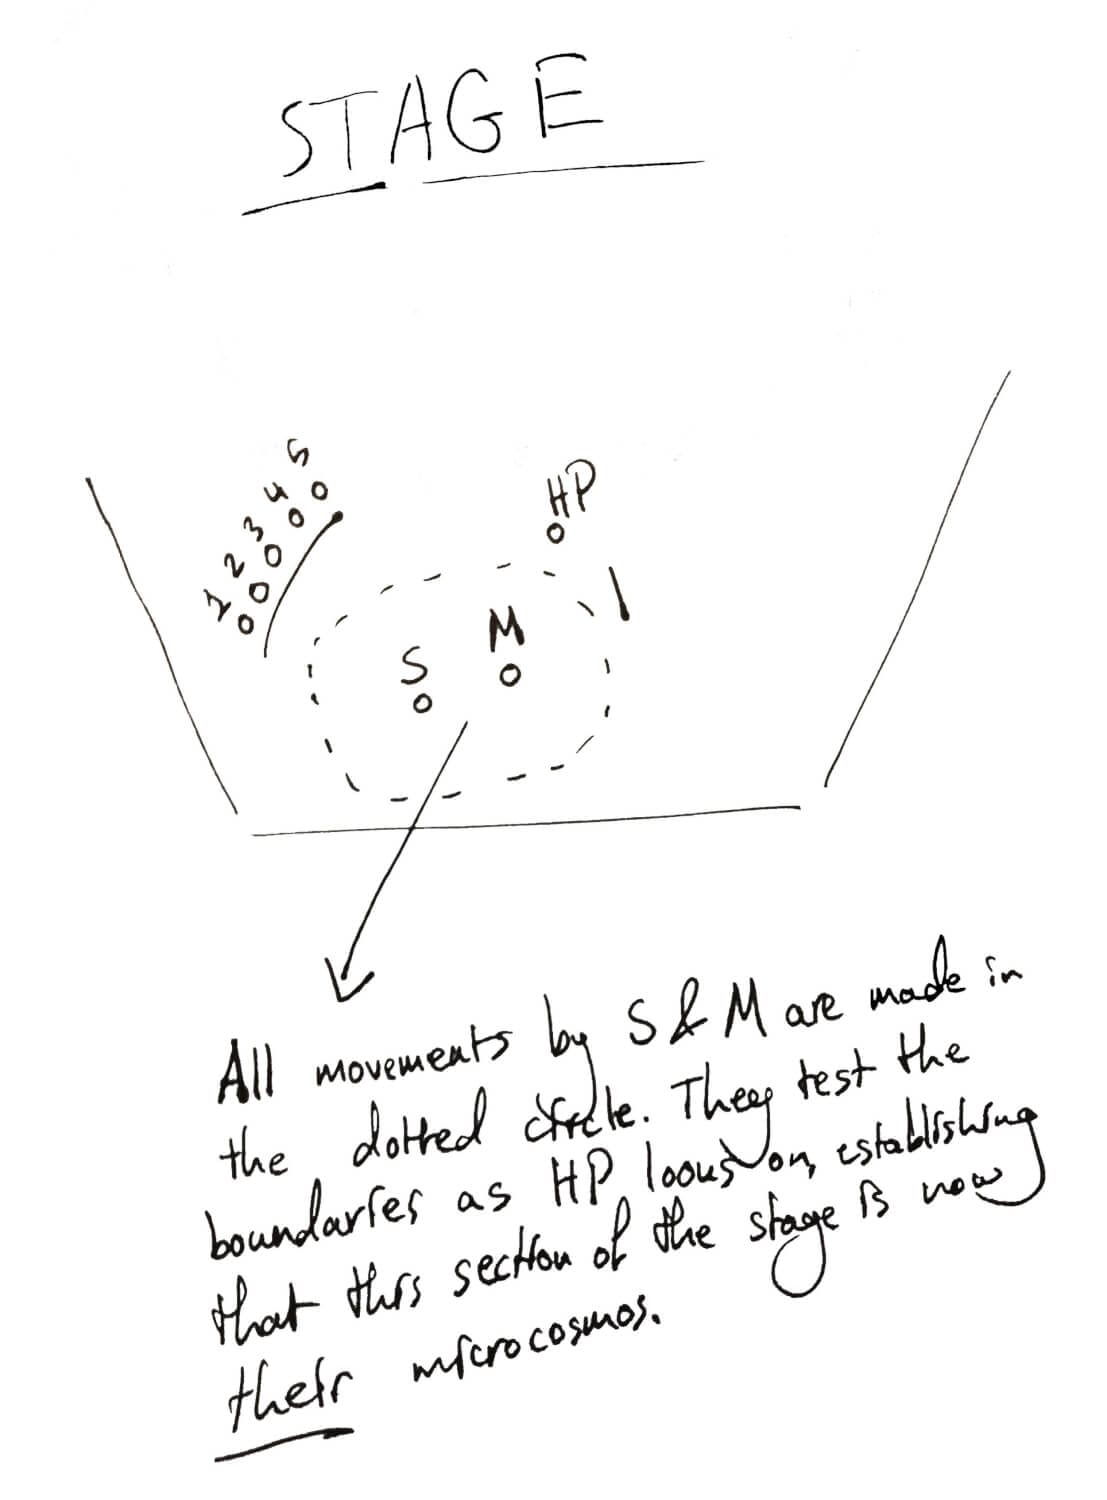 STAGE
5
4
3
2
1
HP
M
S
All movements by S & M are made in
the dotted circle. They test the
boundaries as HP looks on, establishing
that this section of the stage is now
their microcosmos.